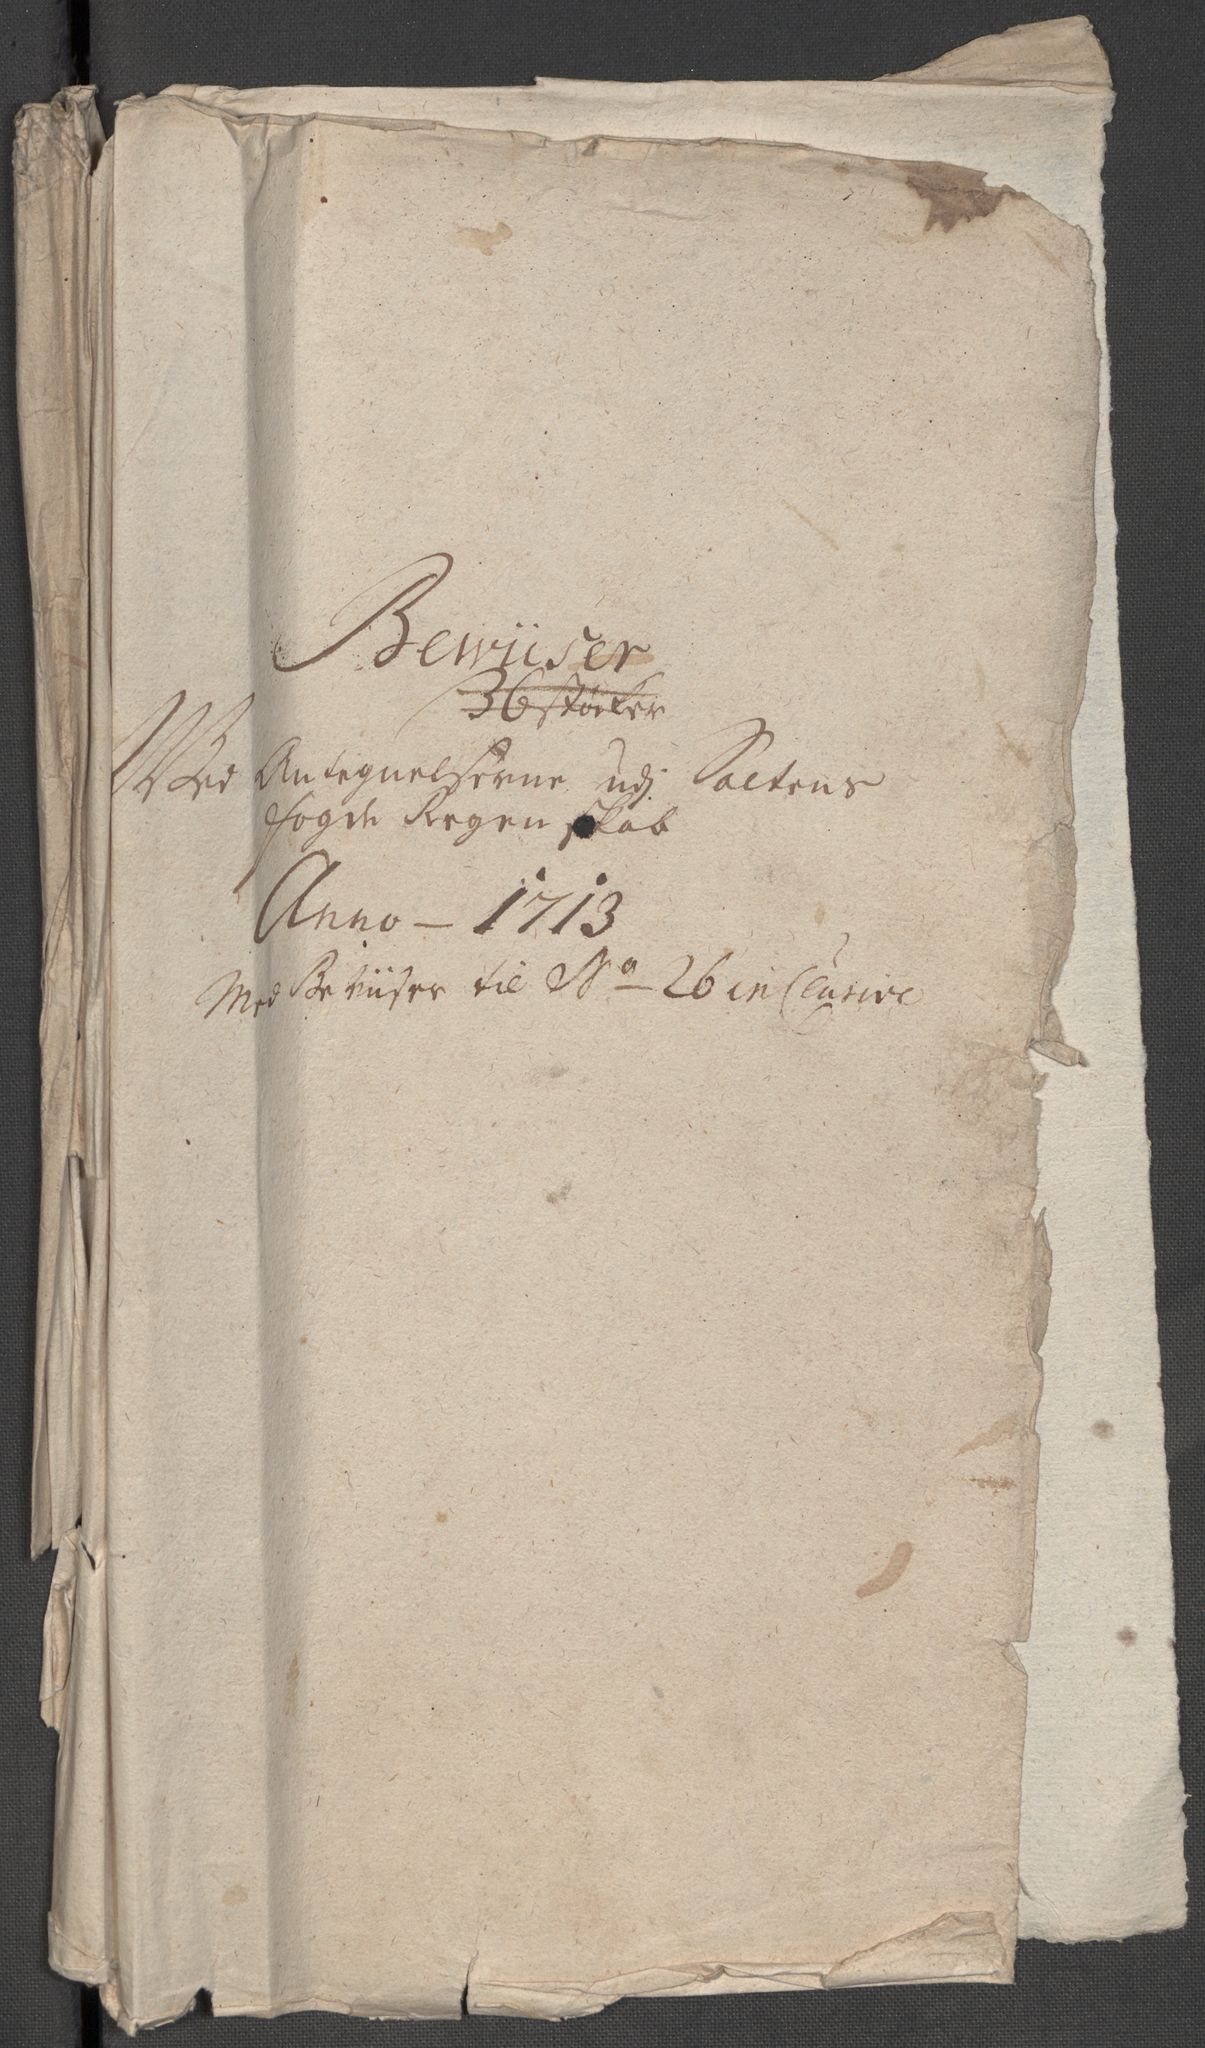 Bewiiser
36 støcker
Ved Antegnelserne udj Saltens
fogde Regenskab
Anno – 1713
Med Beviiser til No 26 inclusive